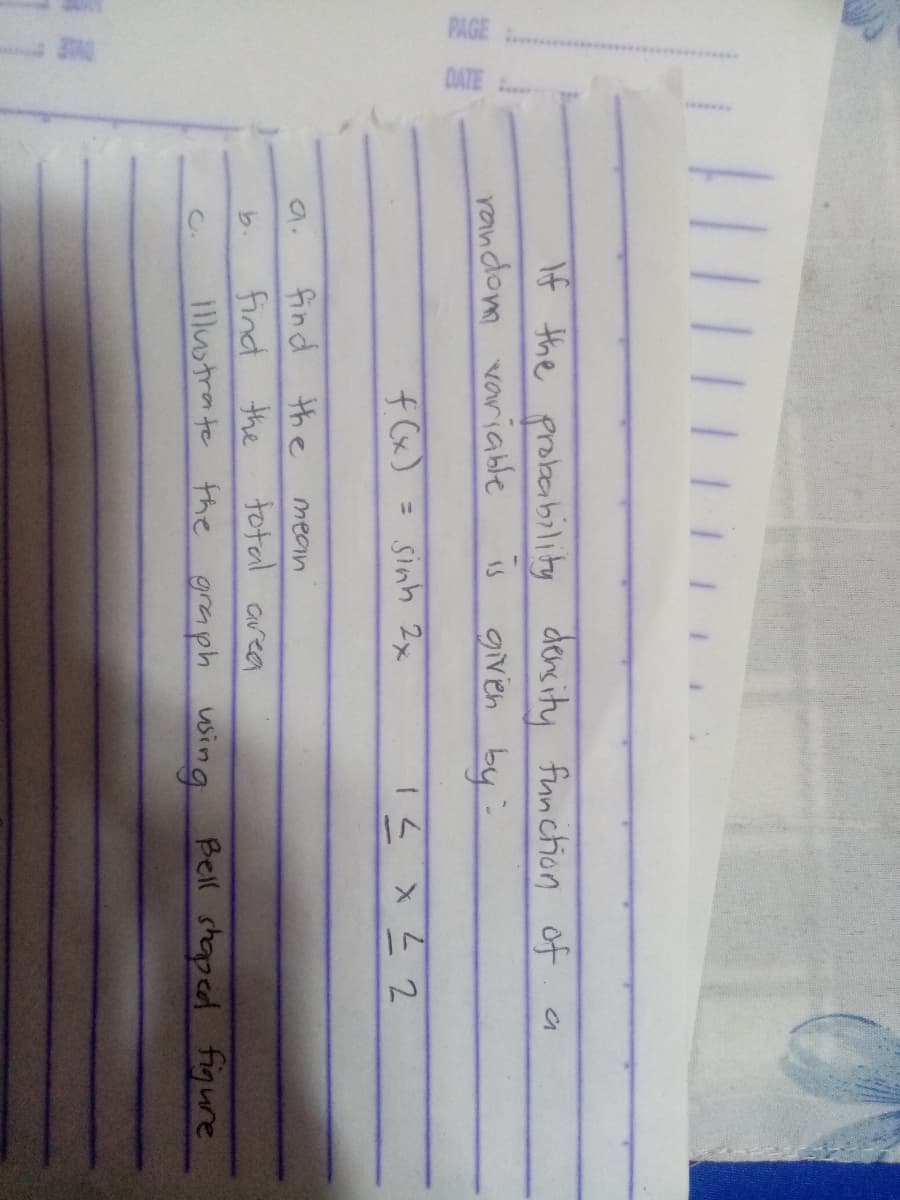 PAGE :
DATE :
If the probability density function of a
random variable is given by:
f(x) = sinh 2x 1 ≤ x ≤ 2
a. find the mean
b. find the total area
c. Illustrate the graph using Bell shaped figure